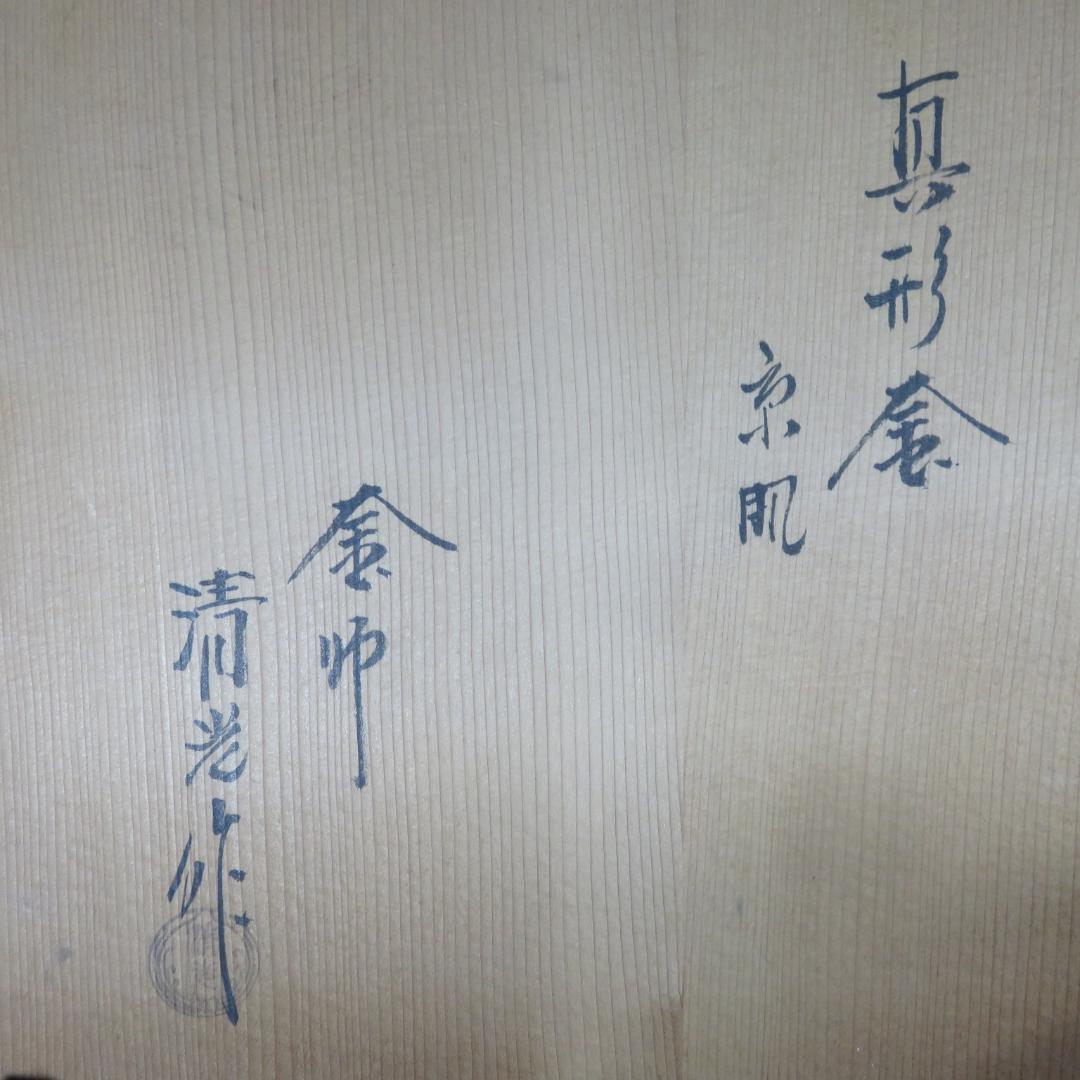 真形釜
京肌
釜師
清光作